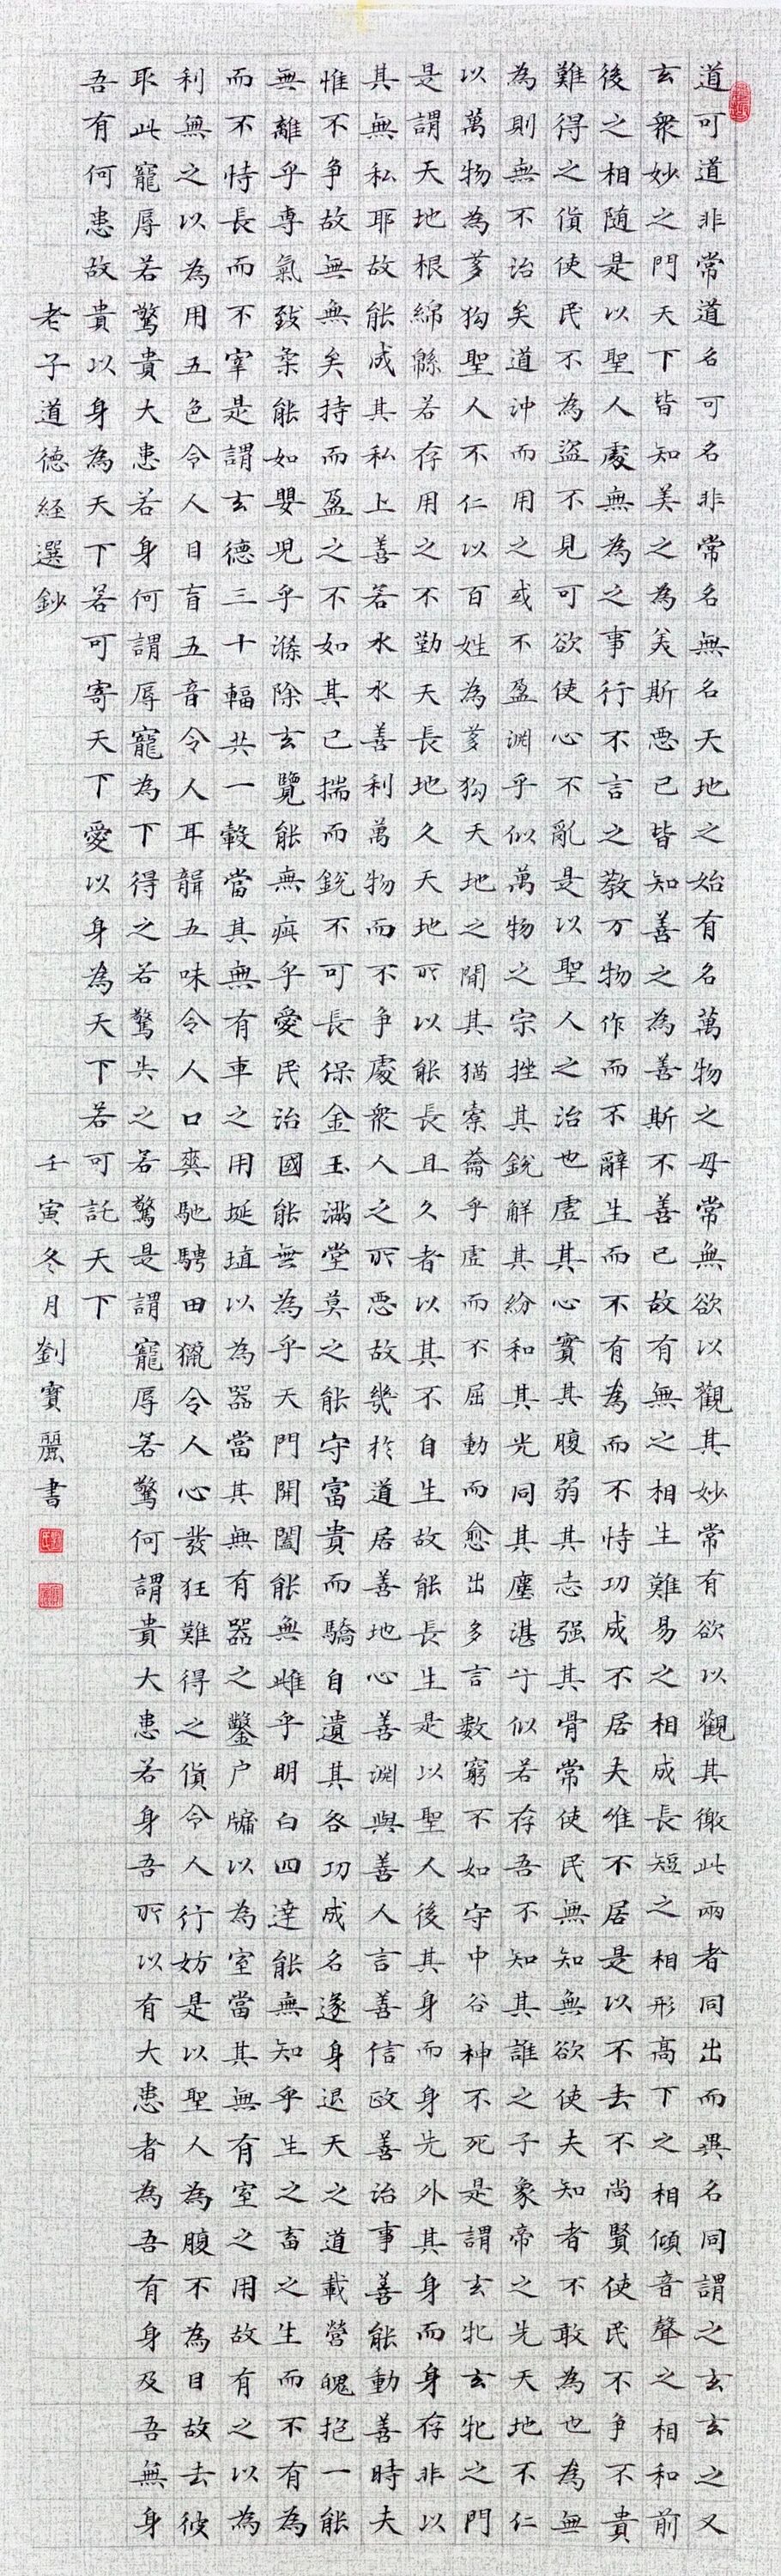 道可道非常道名可名非常名無名天地之始有名萬物之母常無欲以觀其妙常有欲以觀其徼此兩者同出而異名同謂之玄玄之又
玄衆妙之門天下皆知美之為美斯惡已皆知善之為善斯不善已故有無之相生難易之相成長短之相形高下之相傾音聲之相和前
後之相随是以聖人處無為之事行不言之教万物作而不辭生而不有為而不恃功成不居夫維不居是以不去不尚賢使民不争不貴
難得之貨使民不為盜不見可欲使心不亂是以聖人之治也虛其心實其腹弱其志强其骨常使民無知無欲使夫知者不敢為也為無
為則無不治矣道沖而用之或不盈渊乎似萬物之宗挫其銳解其紛和其光同其塵湛兮似若存吾不知其誰之子象帝之先天地不仁
以萬物為芻狗聖人不仁以百姓為芻狗天地之間其猶橐龠乎虛而不屈動而愈出多言數窮不如守中谷神不死是謂玄牝玄牝之門
是謂天地根綿緜若存用之不勤天長地久天地所以能長且久者以其不自生故能長生是以聖人後其身而身先外其身而身存非以
其無私耶故能成其私上善若水水善利萬物而不争處衆人之所惡故幾於道居善地心善渊與善人言善信政善治事善能動善時夫
惟不争故無無矣持而盈之不如其已揣而銳不可長保金玉滿堂莫之能守富貴而驕自遺其各功成名遂身退天之道載營魄抱一能
無離乎專氣致柔能如嬰児乎滌除玄覽能無疵乎愛民治國能無為乎天門開闔能無雌乎明白四達能無知乎生之畜之生而不有為
而不恃長而不宰是謂玄德三十輻共一轂當其無有車之用埏埴以為器當其無有器之鑿户牖以為室當其無有室之用故有之以為
利無之以為用五色令人目盲五音令人耳聾五味令人口爽馳騁田獵令人心發狂難得之貨令人行妨是以聖人為腹不為目故去彼
取此寵辱若驚貴大患若身何謂辱寵為下得之若驚失之若驚是謂寵辱若驚何謂貴大患若身吾所以有大患者為吾有身及吾無身
吾有何患故貴以身為天下若可寄天下愛以身為天下若可託天下
老子道德経選鈔 壬寅冬月劉寳麗書